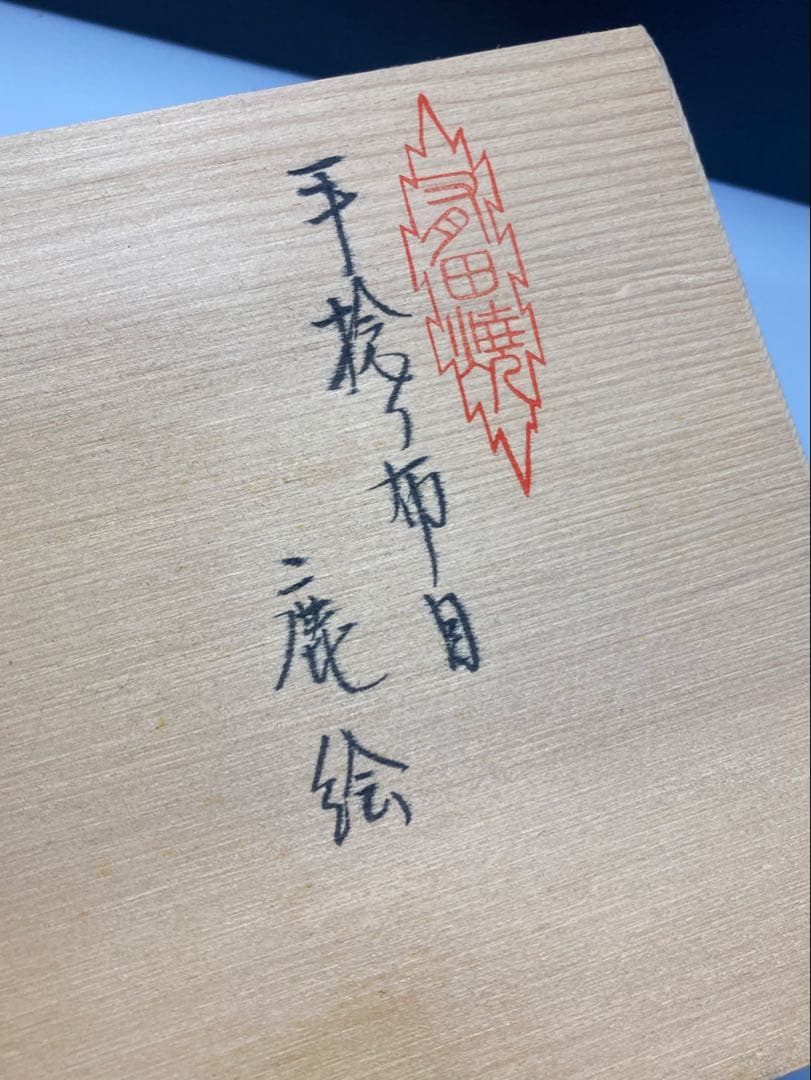 有田焼
手捻り布目
二鹿絵